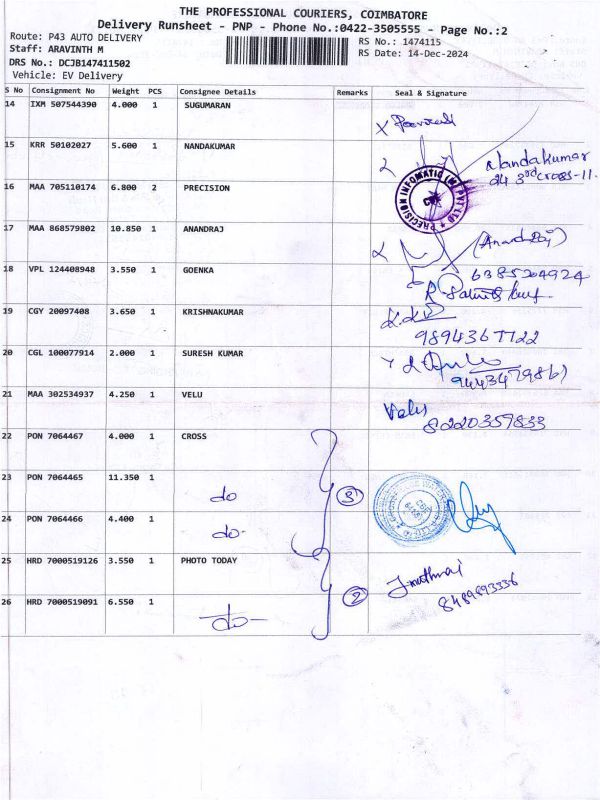 THE PROFESSIONAL COURIERS, COIMBATORE
Delivery Runsheet - PNP - Phone No.:0422-3505555 - Page No.:2
Route: P43 AUTO DELIVERY
RS No.: 1474115
Staff: ARAVINTH M
RS Date: 14-Dec-2024
DRS No.: DCJB147411502
Vehicle: EV Delivery
S No Consignment No Weight PCS Consignee Details Remarks Seal & Signature
14 IXM 507544390 4.000 1 SUGUMARAN
15 KRR 50102027 5.600 1 NANDAKUMAR Nandakumar
24 3rd cross-11.
16 MAA 705110174 6.800 2 PRECISION
PRECISION INFOMATIC (M) PVT LTD
17 MAA 868579802 10.850 1 ANANDRAJ (Anand Raj)
6385204924
18 VPL 124408948 3.550 1 GOENKA
19 CGY 20097408 3.650 1 KRISHNAKUMAR
9894367722
20 CGL 100077914 2.000 1 SURESH KUMAR
21 MAA 302534937 4.250 1 VELU Velu
8220359833
22 PON 7064467 4.000 1 CROSS
23 PON 7064465 11.350 1 do 3
24 PON 7064466 4.400 1 do
25 HRD 7000519126 3.550 1 PHOTO TODAY
2
8489893336
26 HRD 7000519091 6.550 1 do